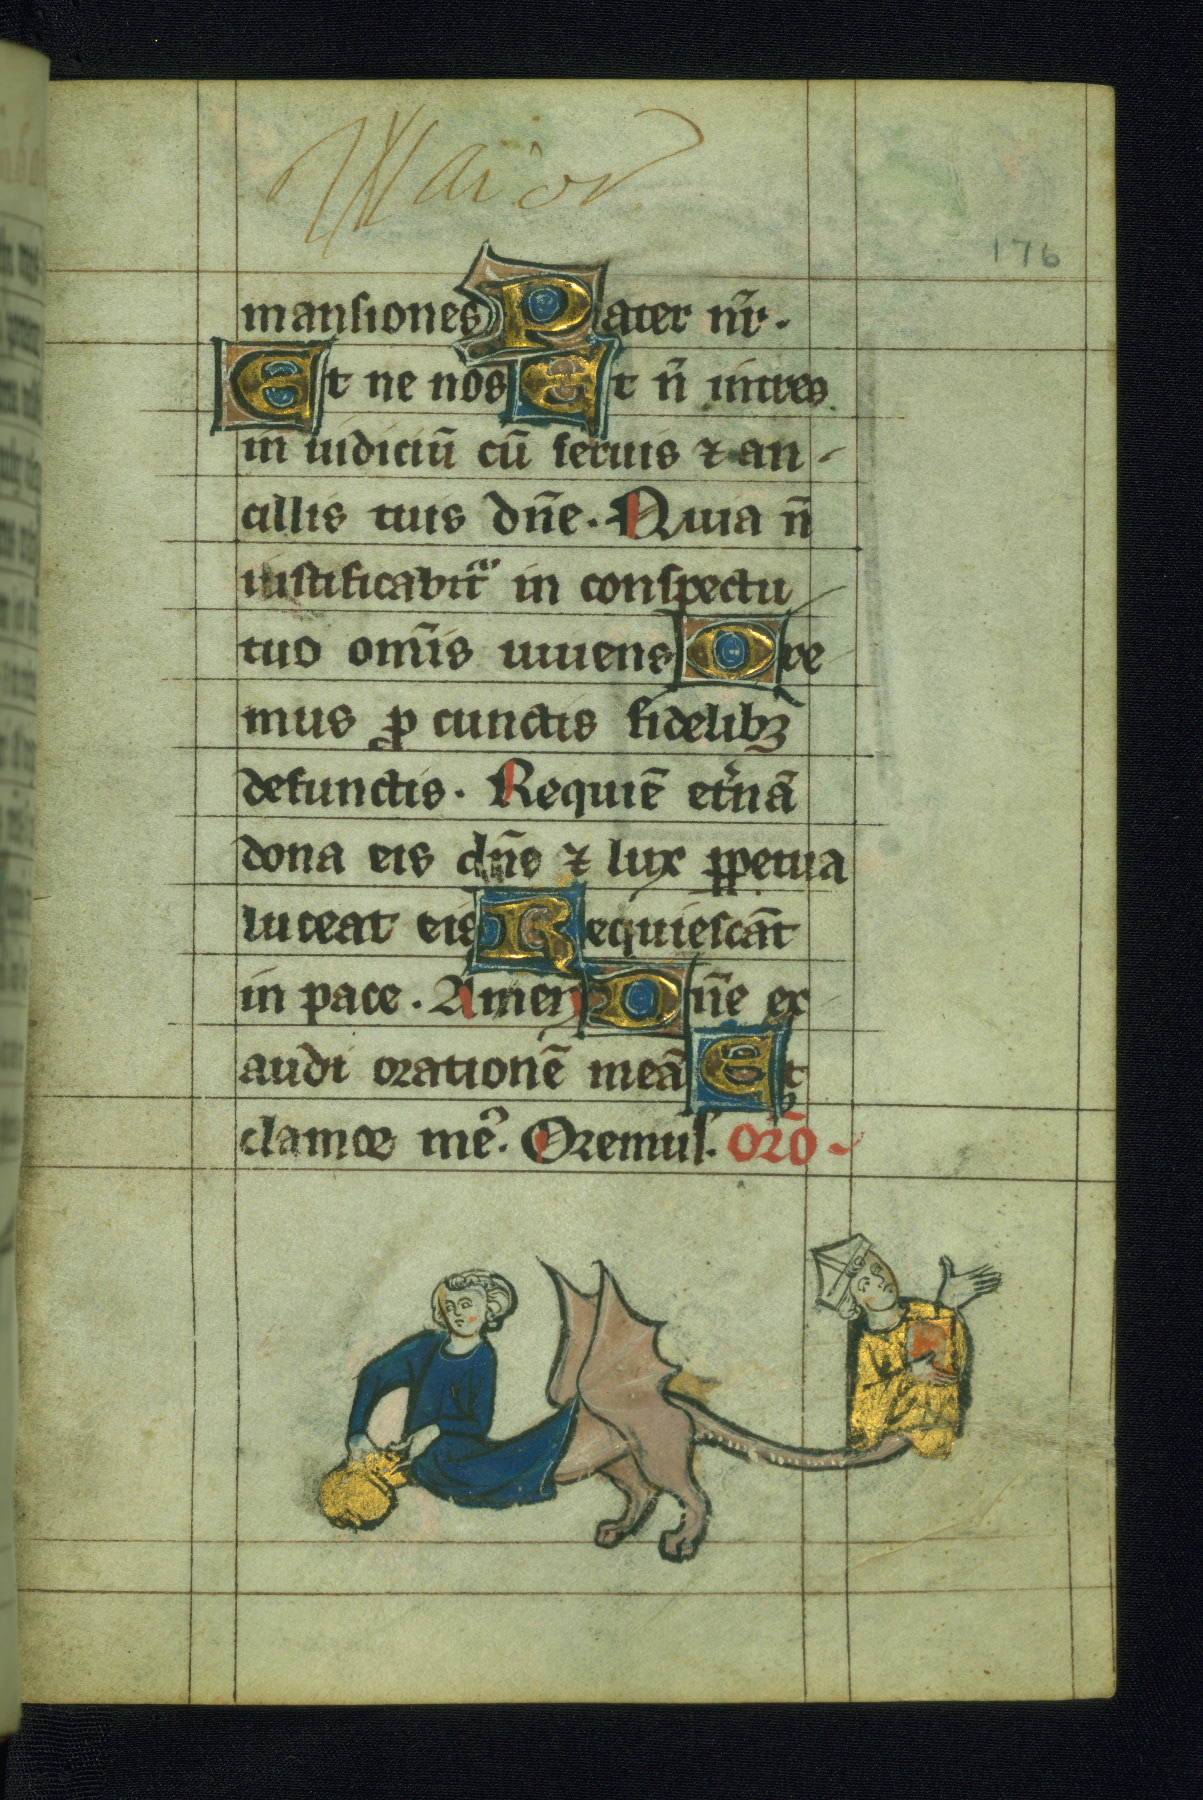 Maior
176
mansiones Pater nr̃.
Et ne nos Et ñ intres
in iudiciũ cũ seruis ⁊ an-
cillis tuis dñe. Quia ñ
iustificabit̃ᵃ in conspectu
tuo om̃is uiuens Ore
mus ꝓ cunctis fidelibꝫ
defunctis. Requiẽ et̃nã
dona eis dñe ⁊ lux ꝑpetua
luceat eis Requiescãt
in pace. Amen Dñe ex
audi orationẽ meã Et
clamor me᾽. Oremus. Orõ